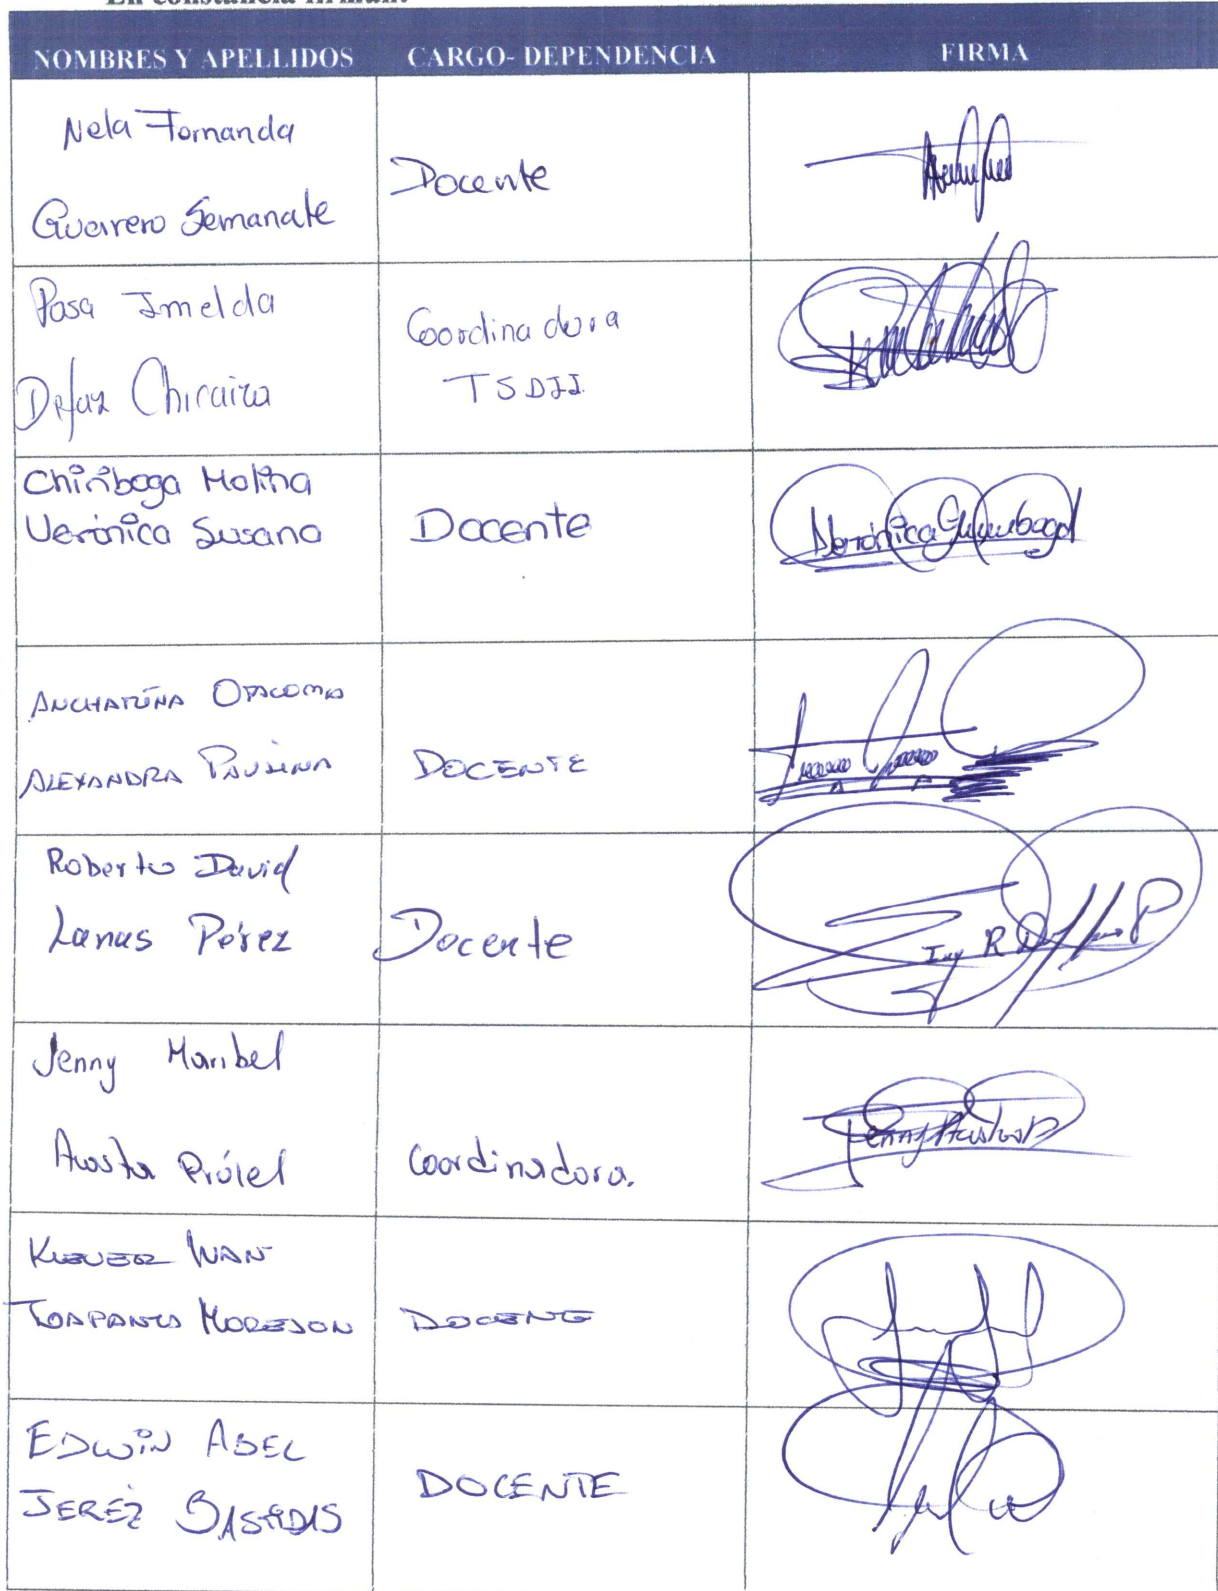 En constancia firman:
NOMBRES Y APELLIDOS CARGO- DEPENDENCIA FIRMA
Nela Fernanda
Guerrero Semanate
Docente
Rosa Imelda
Defaz Chicaiza
Coordinadora
TSDII
Chiriboga Molina
Verónica Susana
Docente
Verónica Chiriboga
ANCHATUÑA
ALEXANDRA PAULINA
DOCENTE
Roberto David
Lanas Pérez
Docente
Ing R
Jenny Maribel
Acosta
Coordinadora.
Jenny Acosta
KLEVER IVAN
TOAPANTA MOREJON
DOCENTE
EDWIN ABEL
JEREZ BASTIDAS
DOCENTE